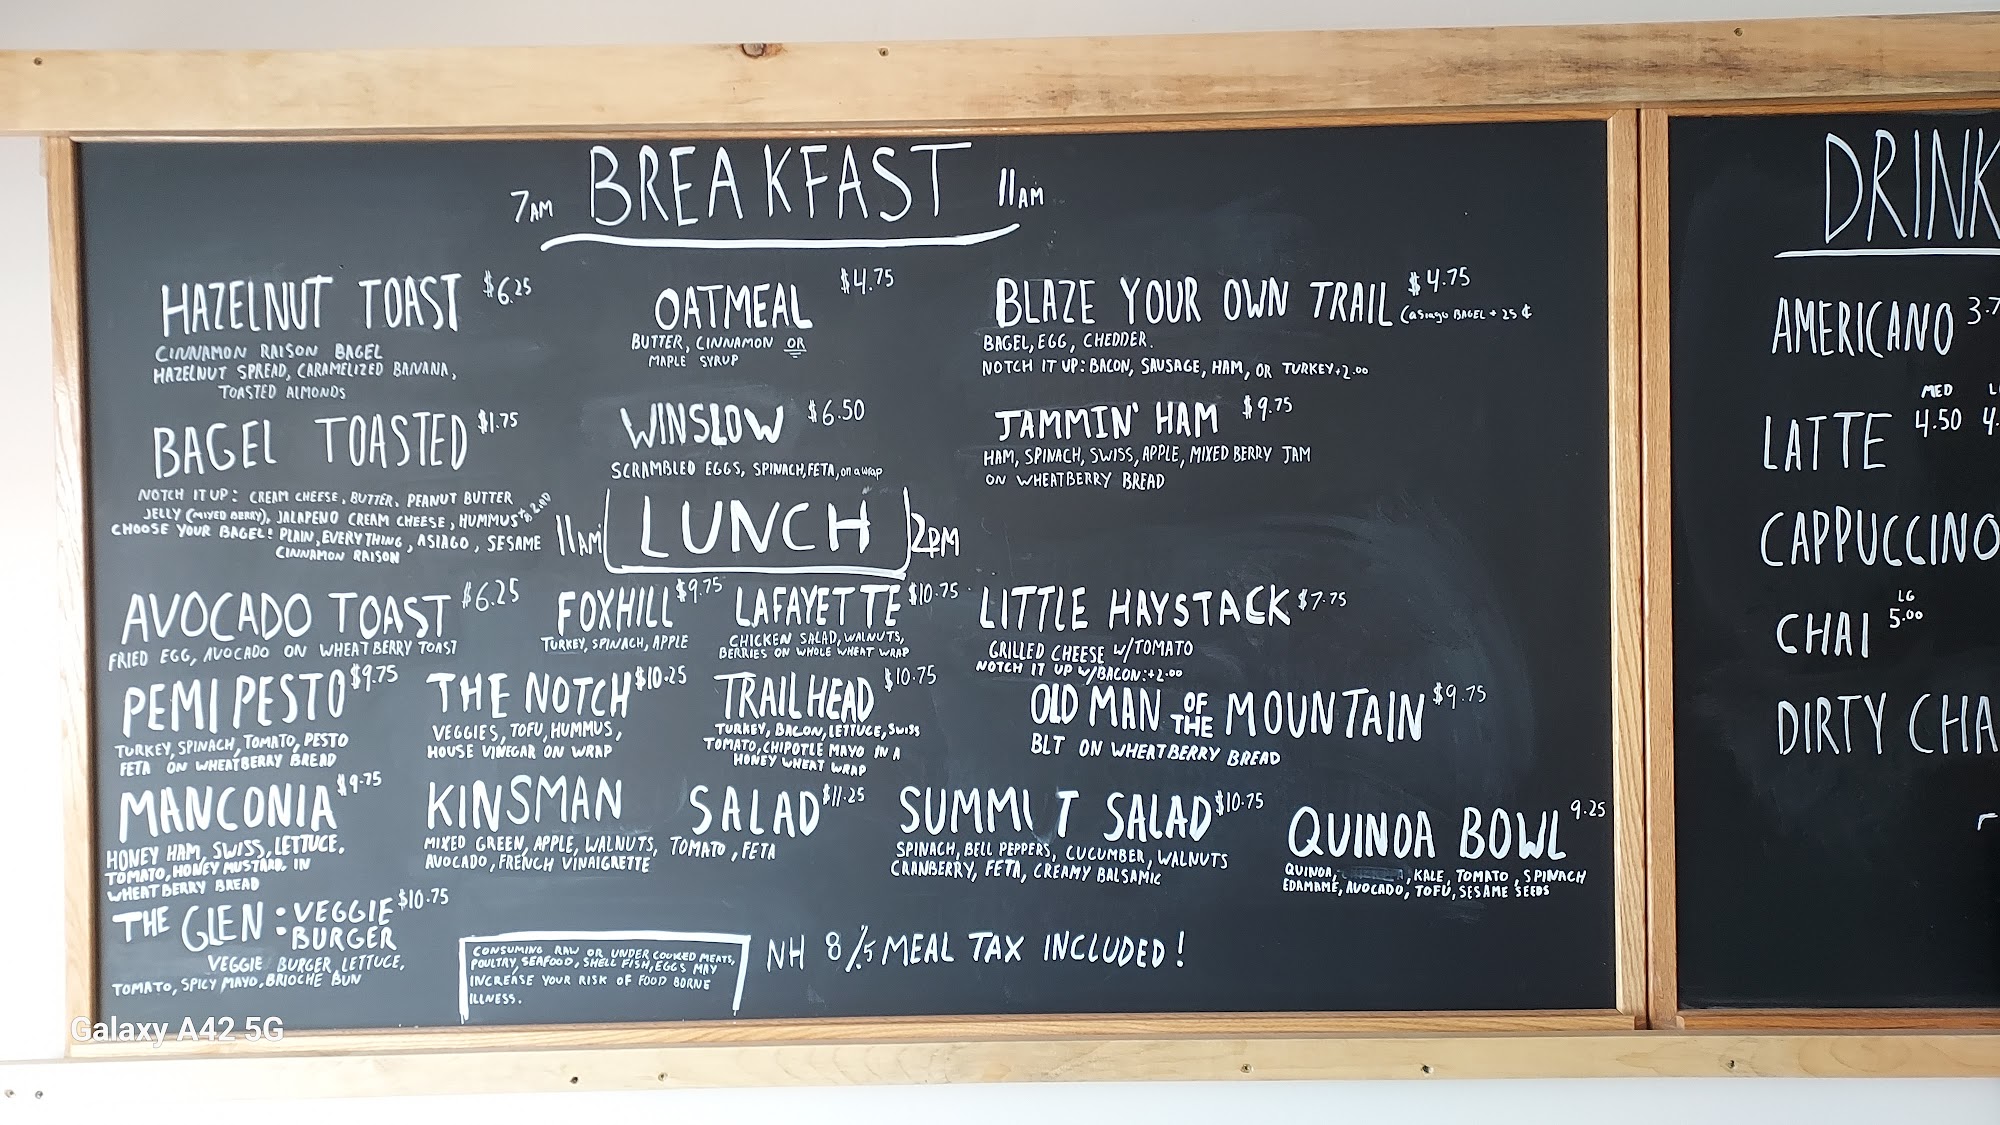 7AM BREAKFAST 11AM
HAZELNUT TOAST $6.25
CINNAMON RAISON BAGEL
HAZELNUT SPREAD, CARAMELIZED BANANA,
TOASTED ALMONDS
OATMEAL $4.75
BUTTER, CINNAMON OR
MAPLE SYRUP
BLAZE YOUR OWN TRAIL $4.75
(asiago BAGEL + 25 ¢
BAGEL, EGG, CHEDDER.
NOTCH IT UP: BACON, SAUSAGE, HAM, OR TURKEY +2.00
BAGEL TOASTED $1.75
NOTCH IT UP: CREAM CHEESE, BUTTER, PEANUT BUTTER
JELLY (MIXED BERRY), JALAPENO CREAM CHEESE, HUMMUS
CHOOSE YOUR BAGEL! PLAIN, EVERYTHING, ASIAGO, SESAME
CINNAMON RAISON
WINSLOW $6.50
SCRAMBLED EGGS, SPINACH, FETA, on a wrap
JAMMIN' HAM $9.75
HAM, SPINACH, SWISS, APPLE, MIXED BERRY JAM
ON WHEATBERRY BREAD
11AM LUNCH 2PM
AVOCADO TOAST $6.25
FRIED EGG, AVOCADO ON WHEATBERRY TOAST
FOXHILL $9.75
TURKEY, SPINACH, APPLE
LAFAYETTE $10.75
CHICKEN SALAD, WALNUTS,
BERRIES ON WHOLE WHEAT WRAP
LITTLE HAYSTACK $7.75
GRILLED CHEESE W/TOMATO
NOTCH IT UP W/BACON: +2.00
PEMI PESTO $9.75
TURKEY, SPINACH, TOMATO, PESTO
FETA ON WHEATBERRY BREAD
THE NOTCH $10.25
VEGGIES, TOFU, HUMMUS,
HOUSE VINEGAR ON WRAP
TRAILHEAD $10.75
TURKEY, BACON, LETTUCE, SWISS
TOMATO, CHIPOTLE MAYO IN A
HONEY WHEAT WRAP
OLD MAN OF THE MOUNTAIN $9.75
BLT ON WHEATBERRY BREAD
MANCONIA $9.75
HONEY HAM, SWISS, LETTUCE,
TOMATO, HONEY MUSTARD IN
WHEATBERRY BREAD
KINSMAN SALAD $11.25
MIXED GREEN, APPLE, WALNUTS, TOMATO, FETA
AVOCADO, FRENCH VINAIGRETTE
SUMMIT SALAD $10.75
SPINACH, BELL PEPPERS, CUCUMBER, WALNUTS
CRANBERRY, FETA, CREAMY BALSAMIC
QUINOA BOWL 9.25
QUINOA, , KALE, TOMATO, SPINACH
EDAMAME, AVOCADO, TOFU, SESAME SEEDS
THE GLEN: VEGGIE BURGER $10.75
VEGGIE BURGER, LETTUCE,
TOMATO, SPICY MAYO, BRIOCHE BUN
CONSUMING RAW OR UNDER COOKED MEATS,
POULTRY, SEAFOOD, SHELL FISH, EGGS MAY
INCREASE YOUR RISK OF FOOD BORNE
ILLNESS.
NH 8 /.5 MEAL TAX INCLUDED!
DRINK
AMERICANO 3.7
MED L
LATTE 4.50 4.
CAPPUCCINO
LG
CHAI 5.00
DIRTY CHA
Galaxy A42 5G